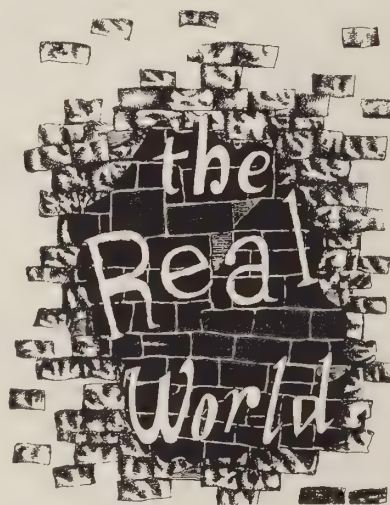 the
Real
World